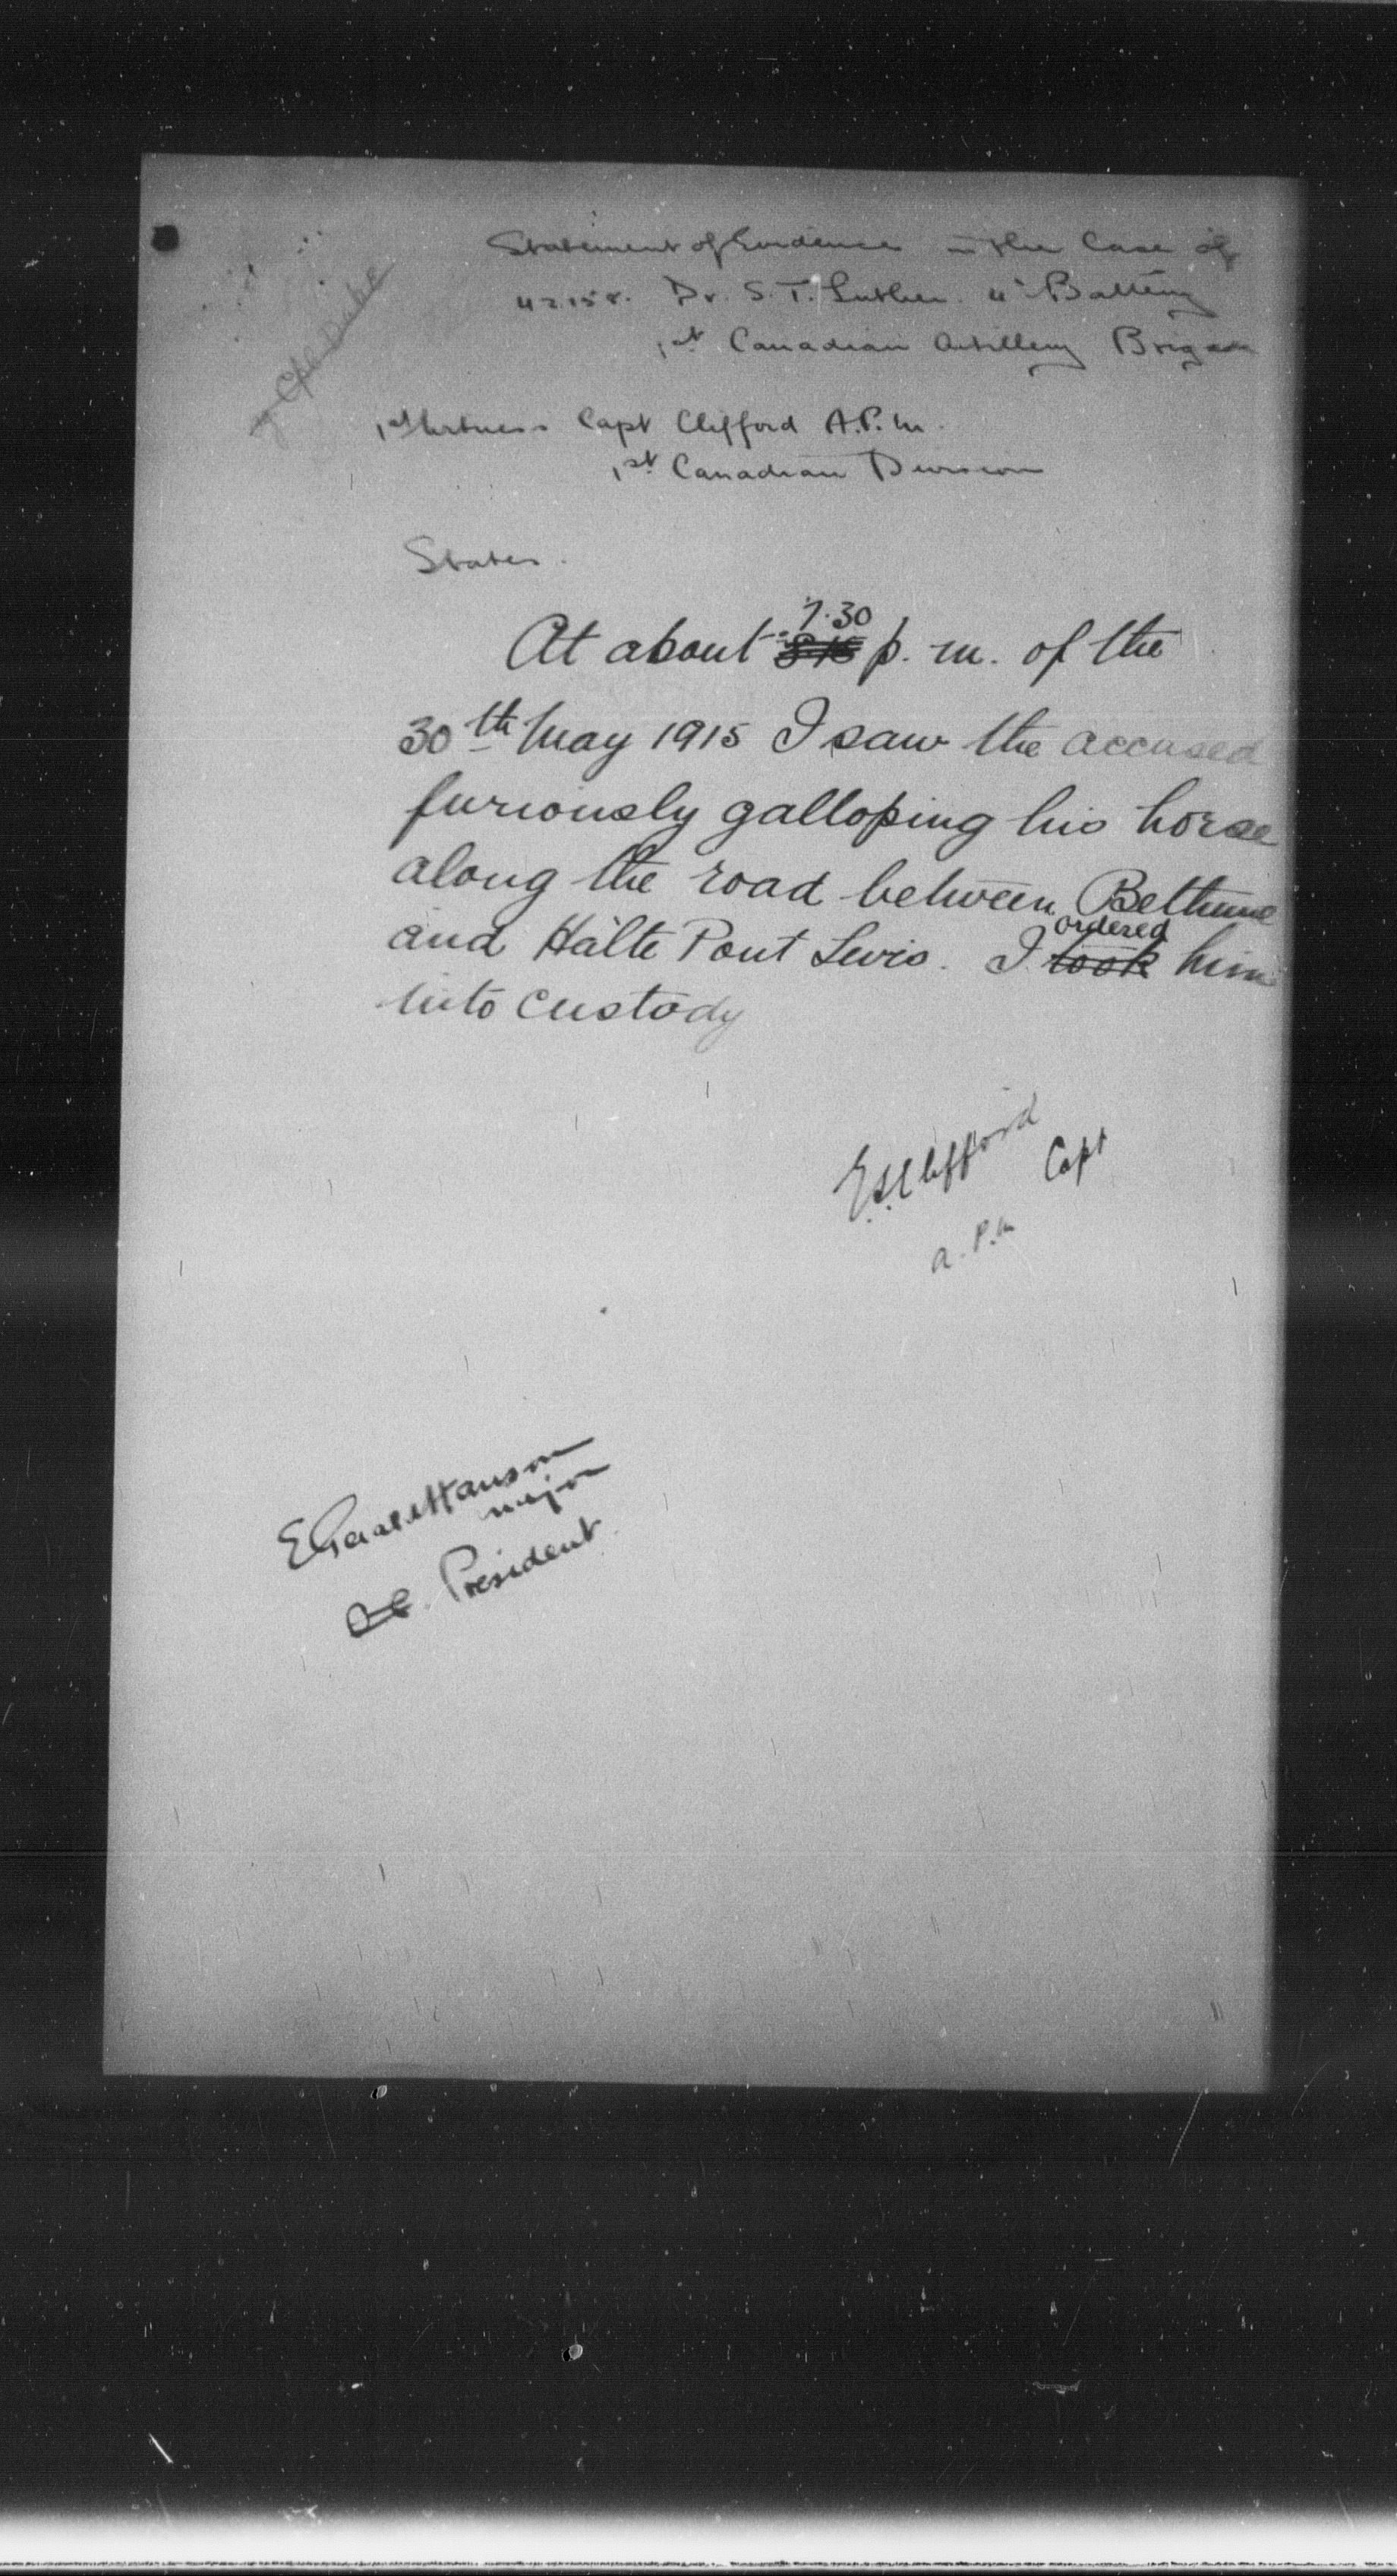 Statement of Evidence in the Case of
42158. Dr. S. T. Luther. 4th Battery
1st Canadian Artillery Brigade
1st Witness Capt Clifford A.P.M.
1st Canadian Division
States.
7.30
At about 8.15 p.m. of the
30th May 1915 I saw the accused
furiously galloping his horse
along the road between Bethune
ordered
and Halte Pont Levis. I took him
into custody
E.S. Clifford
Capt
A.P.M
Hanson
major
OC. President